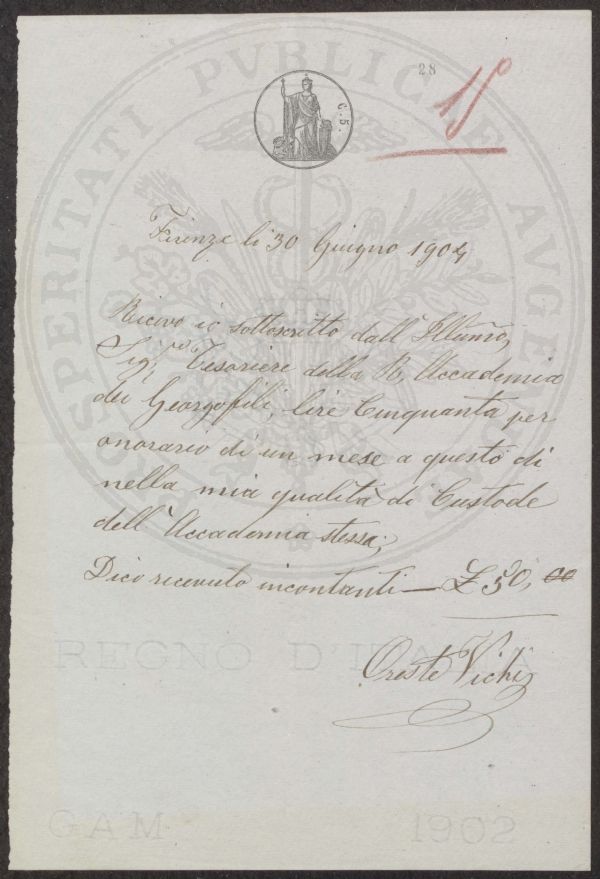 28
18
C. 5.
PROSPERITATI PVBLICAE AVGENDAE
Firenze li 30 Giugno 1904
Ricevo io sottoscritto dall' Illumo,
Sigr Tesoriere della R. Accademia
dei Georgofili, lire Cinquanta per
onorario di un mese a questo dì
nella mia qualità di Custode
dell' Accademia stessa;
Dico ricevuto in contanti — £ 50, 00
REGNO D'ITALIA
Oreste Vichi
GAM 1902